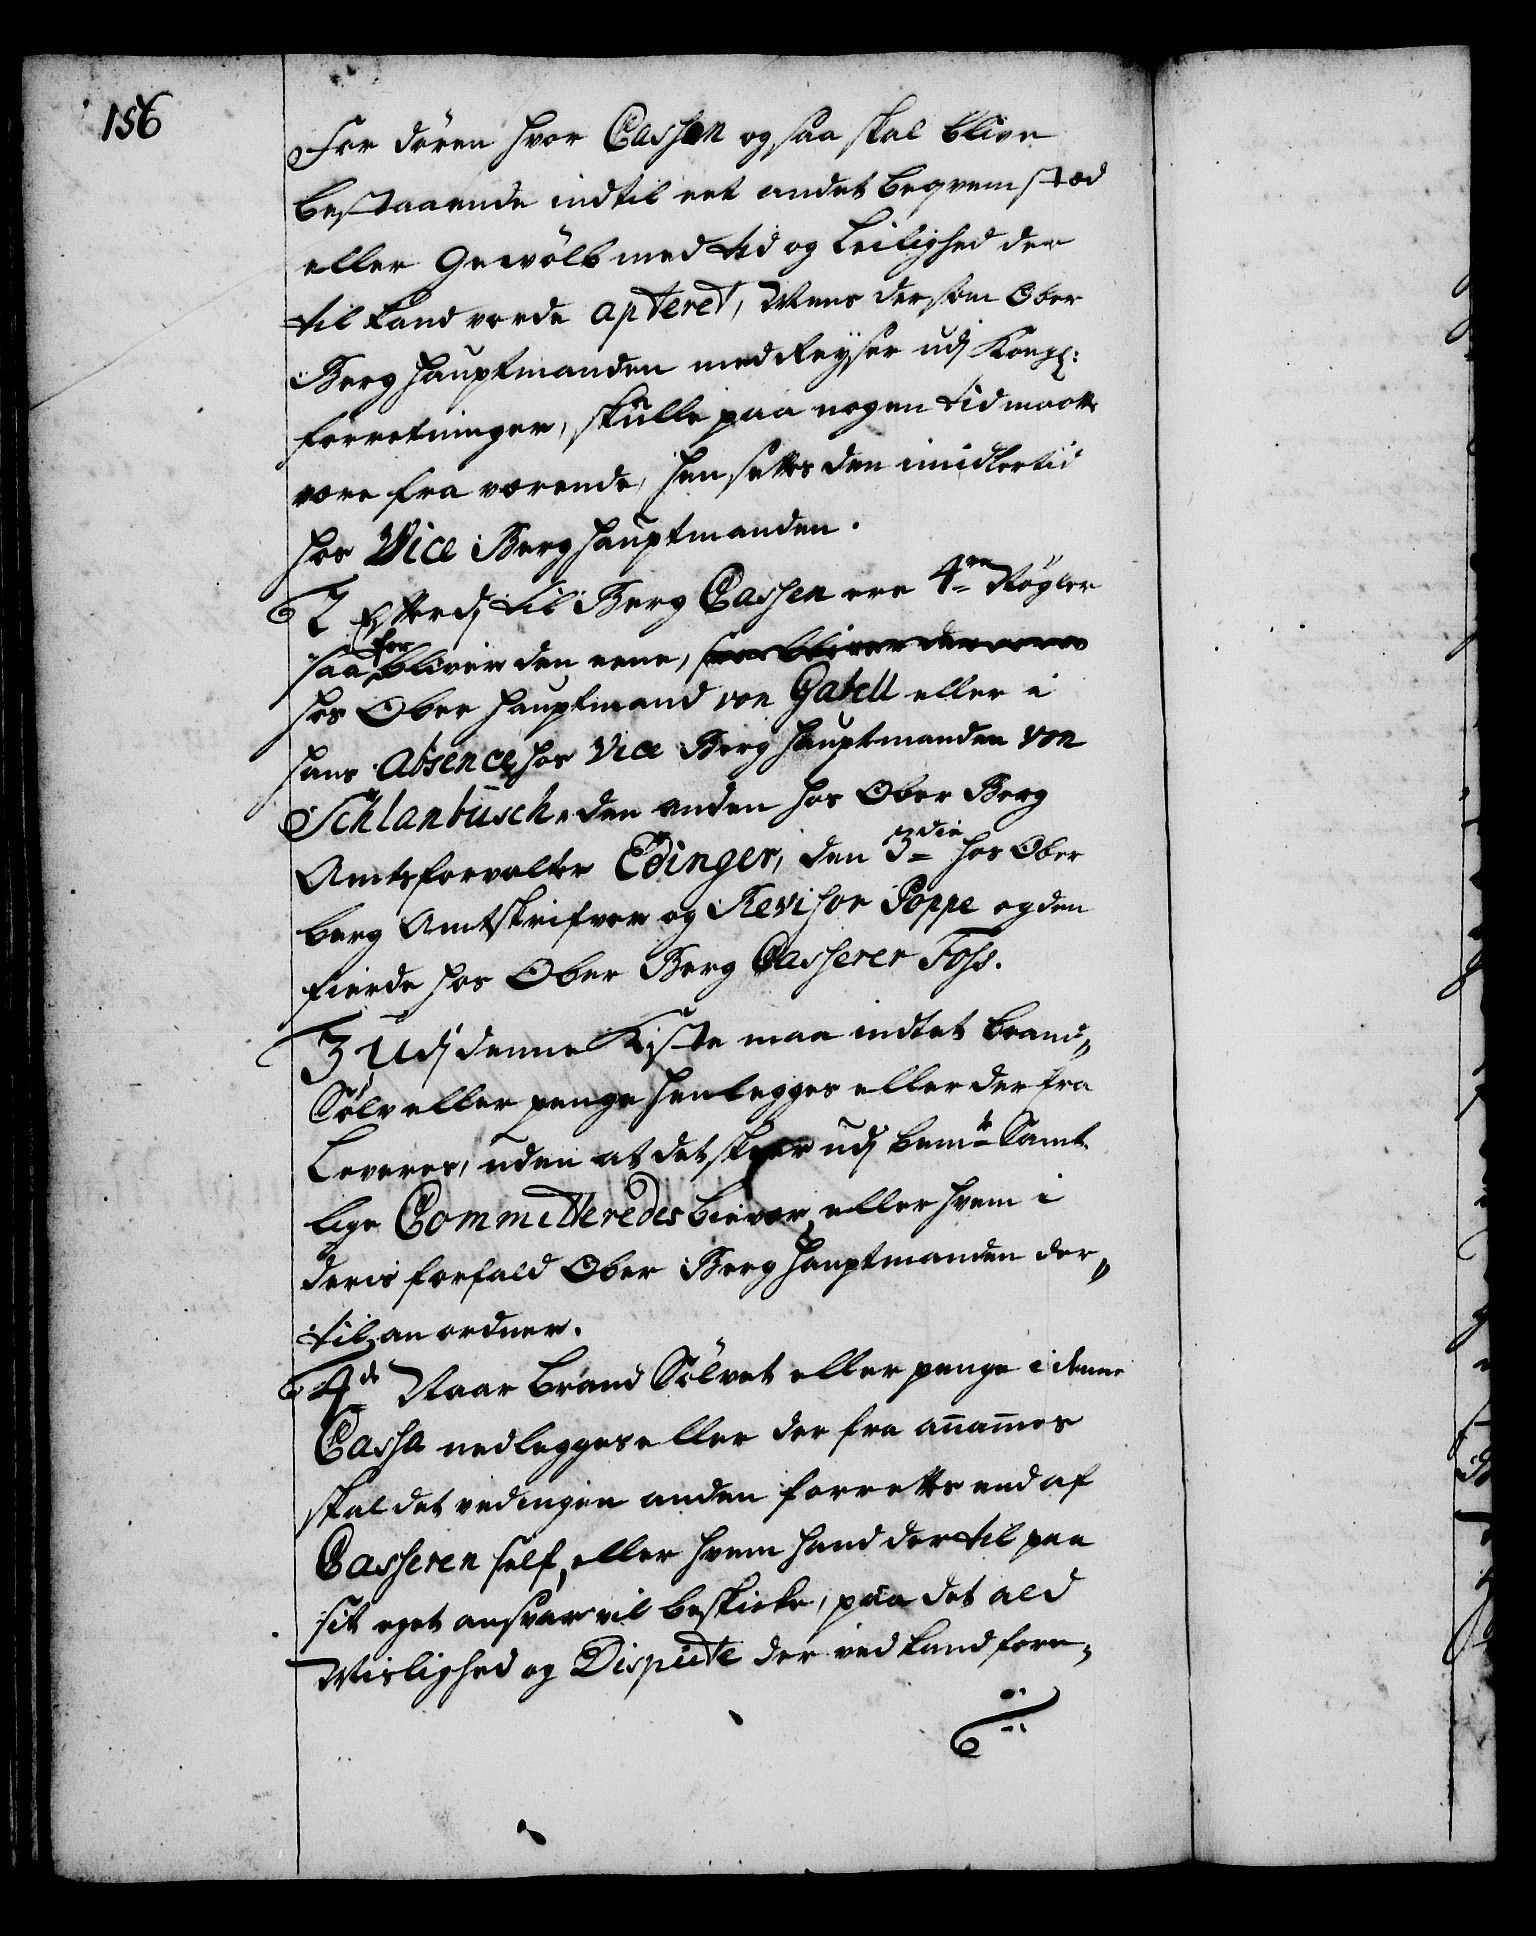 156
for dören hvor Cassen ogsaa skal blive
bestaaende indtil eet andet beqvem stæd
eller Gewölb med tid og leilighed der
til kand vorde apteret, Mens dersom Ober
Berghauptmanden med Reyser udj Kongl:
forretninger, skulle paa nogen tid maatte
være fra værende, hensettes den imidlertid
hos Vice Berghauptmanden.
2 Efterdj til Berg Cassen ere 4re Nögler
saa forbliver den eene, saa bliver den eene
hos Ober hauptmand von Gabell eller i
hans Absence hos Vice Berghauptmanden von
Schlanbusch, den anden hos Ober Berg
Amtsforvalter Edinger, den 3die hos Ober
berg Amtskrifver og Revisor Poppe og den
fierde hos Ober Berg Casserer Foss.
3 Udj denne Kiste maa indtet brand„
Sölv eller penge henlegges eller der fra
leveres, uden at det skeer udj bemte Samt
lige Committeredes bievær, eller hvem i
deris forfald Ober Berghauptmanden der„
til anordner.
4de Naar brand Sölvet eller penge i denne
Cassa nedlegges eller der fra anammes
skal det ved ingen anden forrettes end af
Casseren self, eller hvem hand der til paa
sit eget ansvar vil beskicke, paa det ald
Wislighed og Dispute der ved kand fore„